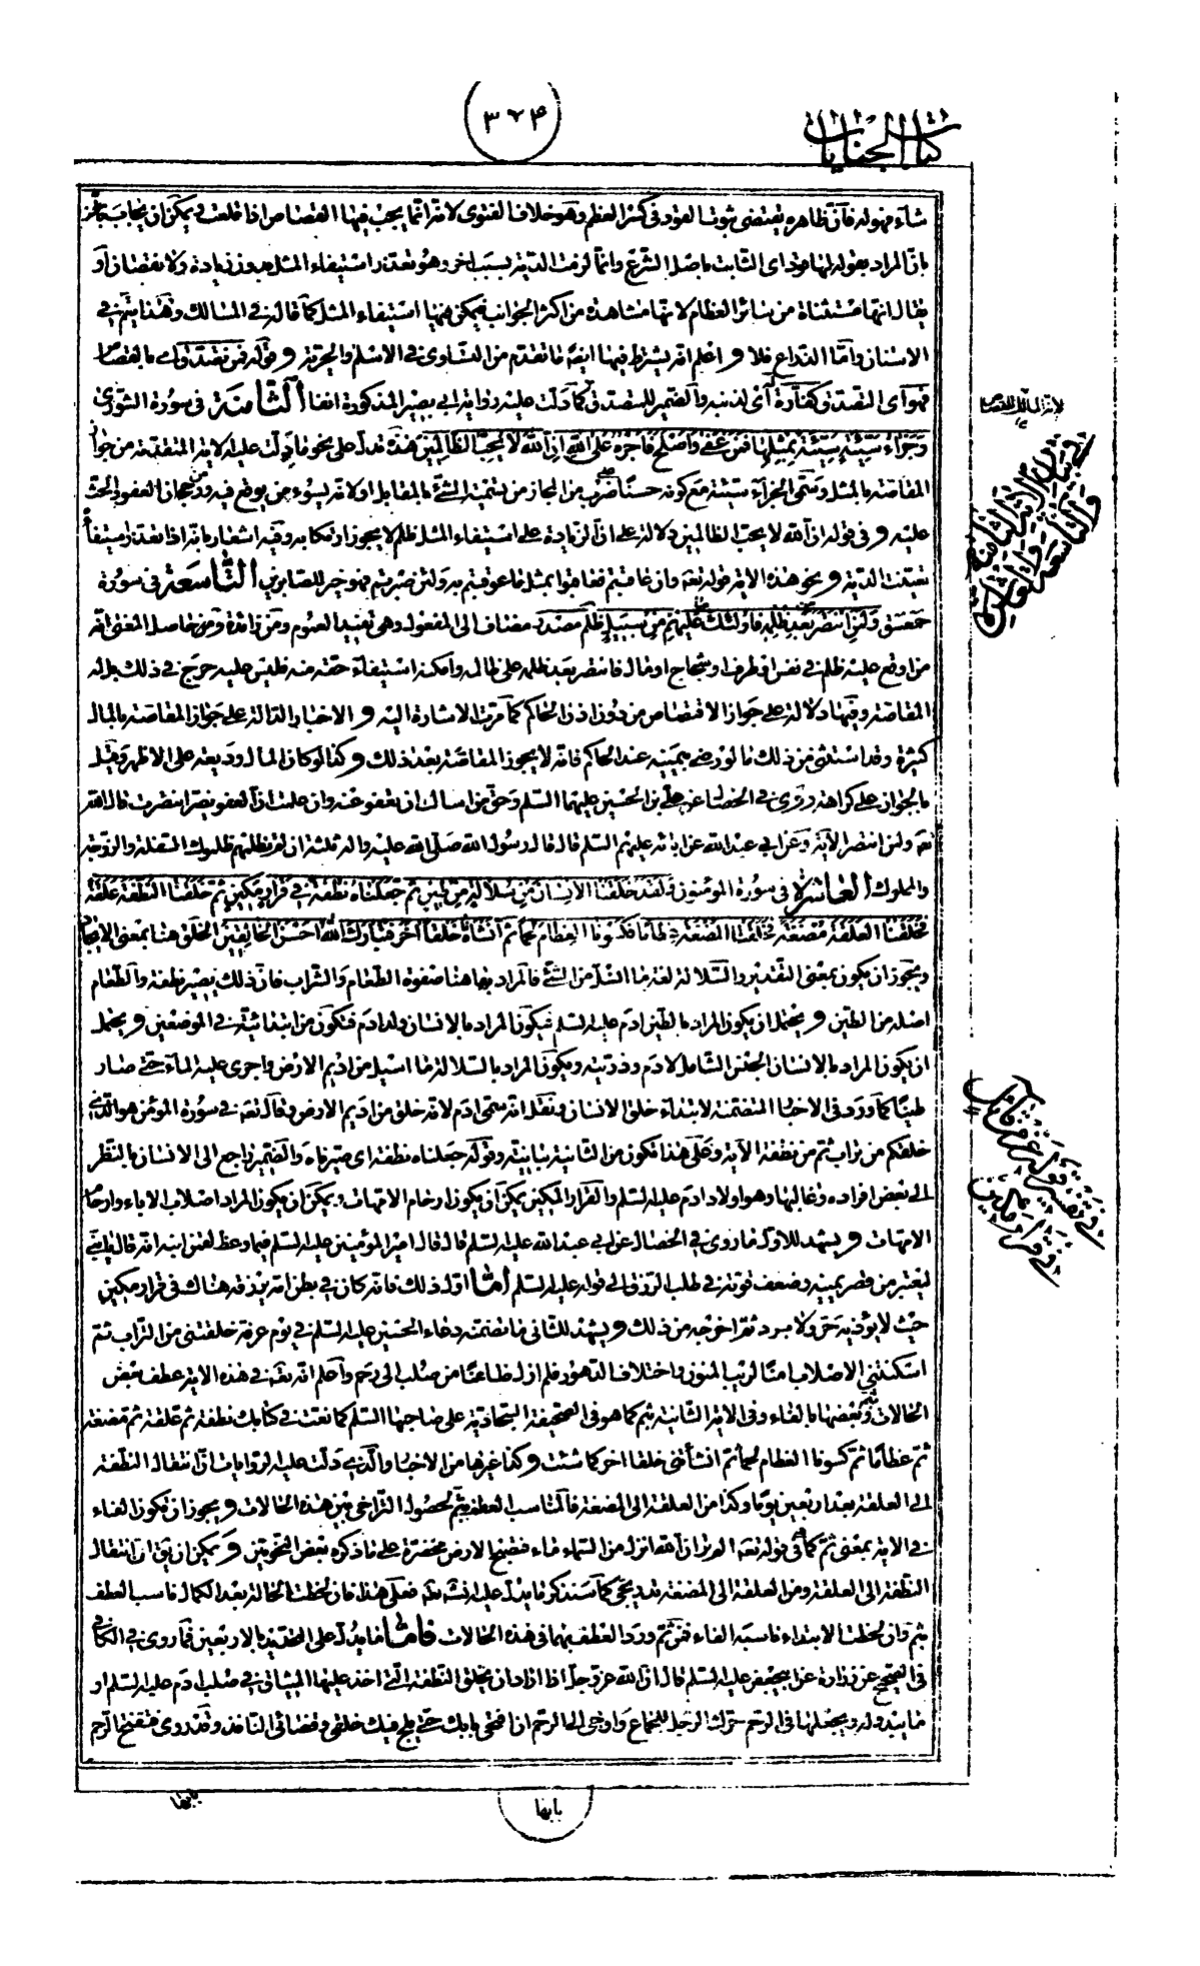 ۳۷۴
كتاب الجنايات
شاء فهو له فان ظاهره يقتضى ثبوت القود فى كسر العظم وهو خلاف الفتوى لانه انما يجب فيها القصاص اذا قلعت و يمكن ان يجاب
بان المراد بقوله لها هوداى الثابت باصل الشرع وانما لزمت الدية بسبب اخر وهو تعذر استيفاء المثل بدون زيادة ولا نقصان او
يقال انها مستثناة من سائر العظام لانها مشاهدة من اكثر الجوانب فيمكن فيها استيفاء المثل كما قاله فى المسالك وهذا يتم فى
الاسنان واما الذراع فلا و اعلم انه يشترط فيها ايضا ما تقدم من التساوى فى الاسلام والحرية و قوله فمن تصدق اى بالقصاص
فهو اى التصدق كفارة اى لذنبه والضمير للمتصدق كما دلت عليه رواية ابى بصير المذكورة انفا الثامنة فى سورة الشورى
وجزاء سيئة سيئة بمثلها فمن عفى واصلح فاجره على الله ان الله لا يحب الظالمين هذه تدل على نحو ما دلت عليه الاية المتقدمة من جواز
المقاصة بالمثل وسمى الجزاء سيئة مع كونه حسنا ضرب من المجاز من تسمية الشئ بالمقابل او لانه يسوء من يوقع فيه ورجحان العفو والحث
عليه و فى قوله ان الله لا يحب الظالمين دلالة على ان الزيادة على استيفاء المثل ظلم لا يجوز ارتكابه وفيه اشعار بانه اذا تعذر استيفاؤه
تعينت الدية و نحو هذه الاية قوله تعه وان عاقبتم فعاقبوا بمثل ما عوقبتم به ولئن صبرتم لهو خير للصابرين التاسعة فى سورة
حمعسق ولمن انتصر بعد ظلمه فاولئك ما عليهم من سبيل ظلم مصدر مضاف الى المفعول وهى تفيد العموم ومن زائدة ومن حاصل المعنى انه
من اوقع عليه ظلم فى نفس او طرف او شجاج او مال فانتصر بعد ظلمه على ظالمه وامكنه استيفاء حقه منه فليس عليه حرج فى ذلك بل له
المقاصة وفيها دلالة على جواز الاقتصاص من دون اذن الحاكم كما مرت الاشارة اليه و الاخبار الدالة على جواز المقاصة بالمال
كثيرة وقد استثنى من ذلك ما لو رضى بيمينه عند الحاكم فانه لا يجوز المقاصة بعد ذلك و كذا لو كان المال وديعة على الاظهر وقيل
بالجواز على كراهة وروى فى الخصال عن على بن الحسين عليهما السلم وحق من اساءك ان تعفو عنه وان علمت ان العفو يضر انتصرت قال الله
تعه ولمن انتصر الاية وعن ابى عبد الله عن ابائه عليهم السلم قال قال رسول الله صلى الله عليه واله ثلثة ان لم تظلمهم ظلموك السفلة والزوجة
والمملوك العاشرة فى سورة المؤمنون ولقد خلقنا الانسان من سلالة من طين ثم جعلناه نطفة فى قرار مكين ثم خلقنا النطفة علقة
فخلقنا العلقة مضغة فخلقنا المضغة عظاما فكسونا العظام لحما ثم انشأناه خلقا اخر فتبارك الله احسن الخالقين الخلق هنا بمعنى الايجاد
ويجوز ان يكون بمعنى التقدير والسلالة لغة ما انسل من الشئ فالمراد بها هنا صفوة الطعام والشراب فان ذلك يصير نطفة والطعام
اصله من الطين و يحتمل ان يكون المراد بالطين ادم عليه السلم فيكون المراد بالانسان ولد ادم فتكون من ابتدائية فى الموضعين و يحتمل
ان يكون المراد بالانسان الجنس الشامل لادم وذريته ويكون المراد بالسلالة ما استل من اديم الارض واجرى عليه الماء حتى صار
طينا كما ورد فى الاخبار المتضمنة لابتداء خلق الانسان ونقل انه سمى ادم لانه خلق من اديم الارض وقال تعه فى سورة المؤمن هو الذى
خلقكم من تراب ثم من نطفة الاية وعلى هذا فتكون من الثانية بيانية وقوله جعلناه نطفة اى صيرناه والضمير راجع الى الانسان بالنظر
الى بعض افراده وغالبها وهو اولاد ادم عليه السلم والقرار المكين يمكن ان يكون ارحام الامهات ويمكن ان يكون المراد اصلاب الاباء وارحام
الامهات و يشهد للاول ما روى فى الخصال عن ابى عبد الله عليه السلم قال قال امير المؤمنين عليه السلم فيما وعظ لقمن ابنه انه قال يا بنى
ليعتبر من قصر يقينه وضعف قوته فى طلب الرزق الى قوله عليه السلم اما اول ذلك فانه كان فى بطن امه يرزقه هناك فى قرار مكين
حيث لا يؤذيه حر ولا برد ثم اخرجه من ذلك و يشهد للثانى ما تضمنه دعاء الحسين عليه السلم فى يوم عرفة خلقتنى من التراب ثم
اسكنتنى الاصلاب امنا لريب المنون واختلاف الدهور فلم ازل ظاعنا من صلب الى رحم واعلم انه تعه فى هذه الاية عطف بعض
الحالات بثم وبعضها بالفاء وفى الاية الثانية بثم كما هو فى الصحيفة السجادية على صاحبها السلم كما نعت فى كتابك نطفة ثم علقة ثم مضغة
ثم عظاما ثم كسوت العظام لحما ثم انشأتنى خلقا اخر كما شئت و كذا غيرها من الاخبار والذى دلت عليه الروايات ان انتقال النطفة
الى العلقة بعد اربعين يوما وكذا من العلقة الى المضغة فالمناسب العطف بثم لحصول التراخى بين هذه الحالات و يجوز ان تكون الفاء
فى الاية بمعنى ثم كما فى قوله تعه الم تر ان الله انزل من السماء ماء فتصبح الارض مخضرة على ما ذكره بعض النحويين و يمكن ان يق ان انتقال
النطفة الى العلقة ومن العلقة الى المضغة تدريجى كما سنذكر ما يدل عليه انشه تعه فعلى هذا فان لحظت الحالة بعد الكمال ناسب العطف
بثم وان لحظت الابتداء ناسبه الفاء فمن ثم ورد العطف بهما فى هذه الحالات فاما ما يدل على التحديد بالاربعين فما روى فى الكافى
فى الصحيح عن زرارة عن ابيجعفر عليه السلم قال ان الله عز وجل اذا اراد ان يخلق النطفة التى اخذ عليها الميثاق فى صلب ادم عليه السلم او
ما يبدو له ويجعلها فى الرحم حرك الرجل للجماع واوحى الى الرحم ان افتحى بابك حتى يلج فيك خلقى وقضائى النافذ وقدرى فتفتح الرحم
بابها
بابها
فى بيان الاية الثامنة
والتاسعة والعاشرة
فى تفسير قوله عز من قائل
فى قرار مكين